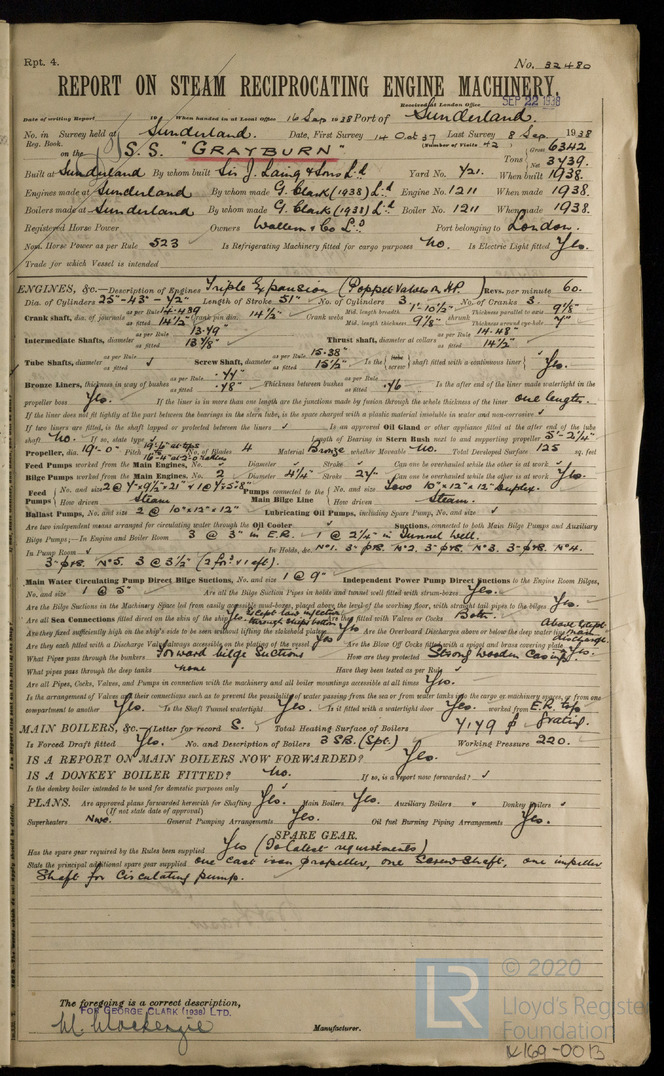 Rpt. 4.
No. 32480
REPORT ON STEAM RECIPROCATING ENGINE MACHINERY.
Received at London Office SEP 22 1938
Date of writing Report 19 When handed in at Local Office 16 Sep 1938 Port of Sunderland.
No. in Survey held at Sunderland. Date, First Survey 14 Oct 37 Last Survey 8 Sep 1938
Reg. Book. (Number of Visits 42)
on the S.S. "GRAYBURN" Tons Gross 6342 Net 3739.
Built at Sunderland By whom built Sir J. Laing & Sons Ld Yard No. 721. When built 1938.
Engines made at Sunderland By whom made G. Clark (1938) Ld. Engine No. 1211 When made 1938.
Boilers made at Sunderland By whom made G. Clark (1938) Ld. Boiler No. 1211 When made 1938.
Registered Horse Power Owners Port belonging to London.
Nom. Horse Power as per Rule 523 Is Refrigerating Machinery fitted for cargo purposes No. Is Electric Light fitted Yes.
Trade for which Vessel is intended
ENGINES, &c.—Description of Engines Triple Expansion (Poppet Valves on H.P.) Revs. per minute 60.
Dia. of Cylinders 25"-43"-72" Length of Stroke 51" No. of Cylinders 3 No. of Cranks 3.
Crank shaft, dia. of journals as per Rule 14.439 as fitted 14½" Crank pin dia. 14½" Crank webs Mid. length breadth 1'-10½" Thickness parallel to axis 9⅛"
Mid. length thickness 9⅛" shrunk Thickness around eye-hole 7"
Intermediate Shafts, diameter as per Rule 13.79" as fitted 13⅞" Thrust shaft, diameter at collars as per Rule 14.48" as fitted 14½"
Tube Shafts, diameter as per Rule as fitted Screw Shaft, diameter as per Rule 15.38" as fitted 15½" Is the tube screw shaft fitted with a continuous liner Yes.
Bronze Liners, thickness in way of bushes as per Rule .77" as fitted .78" Thickness between bushes as per Rule as fitted .76 Is the after end of the liner made watertight in the
propeller boss Yes. If the liner is in more than one length are the junctions made by fusion through the whole thickness of the liner one length.
If the liner does not fit tightly at the part between the bearings in the stern tube, is the space charged with a plastic material insoluble in water and non-corrosive
If two liners are fitted, is the shaft lapped or protected between the liners Is an approved Oil Gland or other appliance fitted at the after end of the tube
shaft No. If so, state type Length of Bearing in Stern Bush next to and supporting propeller 5'-2¼"
Propeller, dia. 19'-0" Pitch No. of Blades 4 Material Bronze whether Moveable No. Total Developed Surface 125 sq. feet
Feed Pumps worked from the Main Engines, No. Diameter Stroke Can one be overhauled while the other is at work
Bilge Pumps worked from the Main Engines, No. 2 Diameter 4¼" Stroke 24" Can one be overhauled while the other is at work Yes.
Feed Pumps No. and size How driven Steam Pumps connected to the Main Bilge Line No. and size 10"x12"x12" Duplex. How driven Steam.
Ballast Pumps, No. and size 2 @ 10"x12"x12" Lubricating Oil Pumps, including Spare Pump, No. and size
Are two independent means arranged for circulating water through the Oil Cooler Suctions, connected to both Main Bilge Pumps and Auxiliary
Bilge Pumps:—In Engine and Boiler Room 3 @ 3" in E.R. 1 @ 2¼" in Tunnel Well.
In Pump Room In Holds, &c. No1. 3" p&s. No2. 3" p&s. No3. 3" p&s. No4.
3" p&s. No5. 3 @ 3½"
Main Water Circulating Pump Direct Bilge Suctions, No. and size 1 @ 9" Independent Power Pump Direct Suctions to the Engine Room Bilges,
No. and size 1 @ 5" Are all the Bilge Suction Pipes in holds and tunnel well fitted with strum-boxes Yes.
Are the Bilge Suctions in the Machinery Space led from easily accessible mud-boxes, placed above the level of the working floor, with straight tail pipes to the bilges Yes.
Are all Sea Connections fitted direct on the skin of the ship Yes. Except main injection through ships bottom Are they fitted with Valves or Cocks Both.
Are they fixed sufficiently high on the ship's side to be seen without lifting the stokehold plates Yes Are the Overboard Discharges above or below the deep water line Above except main discharge.
Are they each fitted with a Discharge Valve always accessible on the plating of the vessel Yes Are the Blow Off Cocks fitted with a spigot and brass covering plate Yes.
What Pipes pass through the bunkers Forward bilge Suctions How are they protected Strong wooden casings.
What pipes pass through the deep tanks None Have they been tested as per Rule
Are all Pipes, Cocks, Valves, and Pumps in connection with the machinery and all boiler mountings accessible at all times Yes.
Is the arrangement of Valves and their connections such as to prevent the possibility of water passing from the sea or from water tanks to the cargo or machinery spaces, or from one
compartment to another Yes. Is the Shaft Tunnel watertight Yes. Is it fitted with a watertight door Yes. worked from E.R. top grating.
MAIN BOILERS, &c.—(Letter for record S.) Total Heating Surface of Boilers 7179
Is Forced Draft fitted Yes. No. and Description of Boilers 3 SB. (Spt.) Working Pressure 220.
IS A REPORT ON MAIN BOILERS NOW FORWARDED? Yes.
IS A DONKEY BOILER FITTED? No. If so, is a report now forwarded?
Is the donkey boiler intended to be used for domestic purposes only
PLANS. Are approved plans forwarded herewith for Shafting Yes. Main Boilers Yes. Auxiliary Boilers Donkey Boilers
(If not state date of approval)
Superheaters General Pumping Arrangements Yes. Oil fuel Burning Piping Arrangements Yes.
SPARE GEAR.
Has the spare gear required by the Rules been supplied Yes (To latest requirements)
State the principal additional spare gear supplied one cast iron propeller, one screwshaft, one impeller
shaft for circulating pump.
The foregoing is a correct description,
FOR GEORGE CLARK (1938) LTD.
Manufacturer.
LR © 2020
Lloyd's Register
Foundation
169-0013